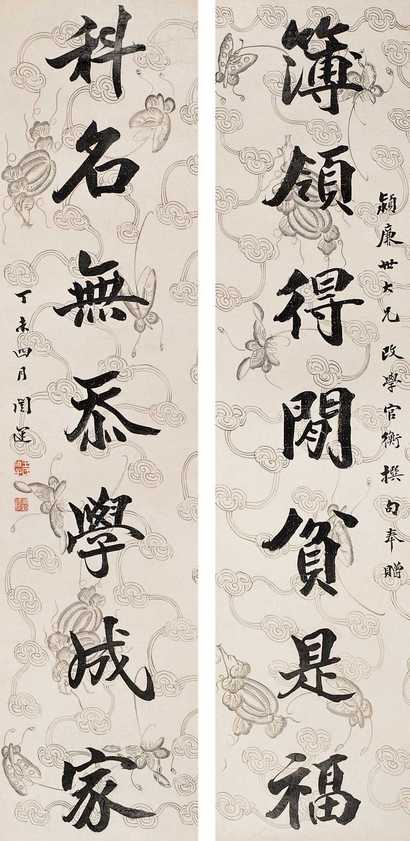 潁廉世大兄改學官銜撰句奉贈
簿領得閒貧是福
科名無忝學成家
丁未四月闓運